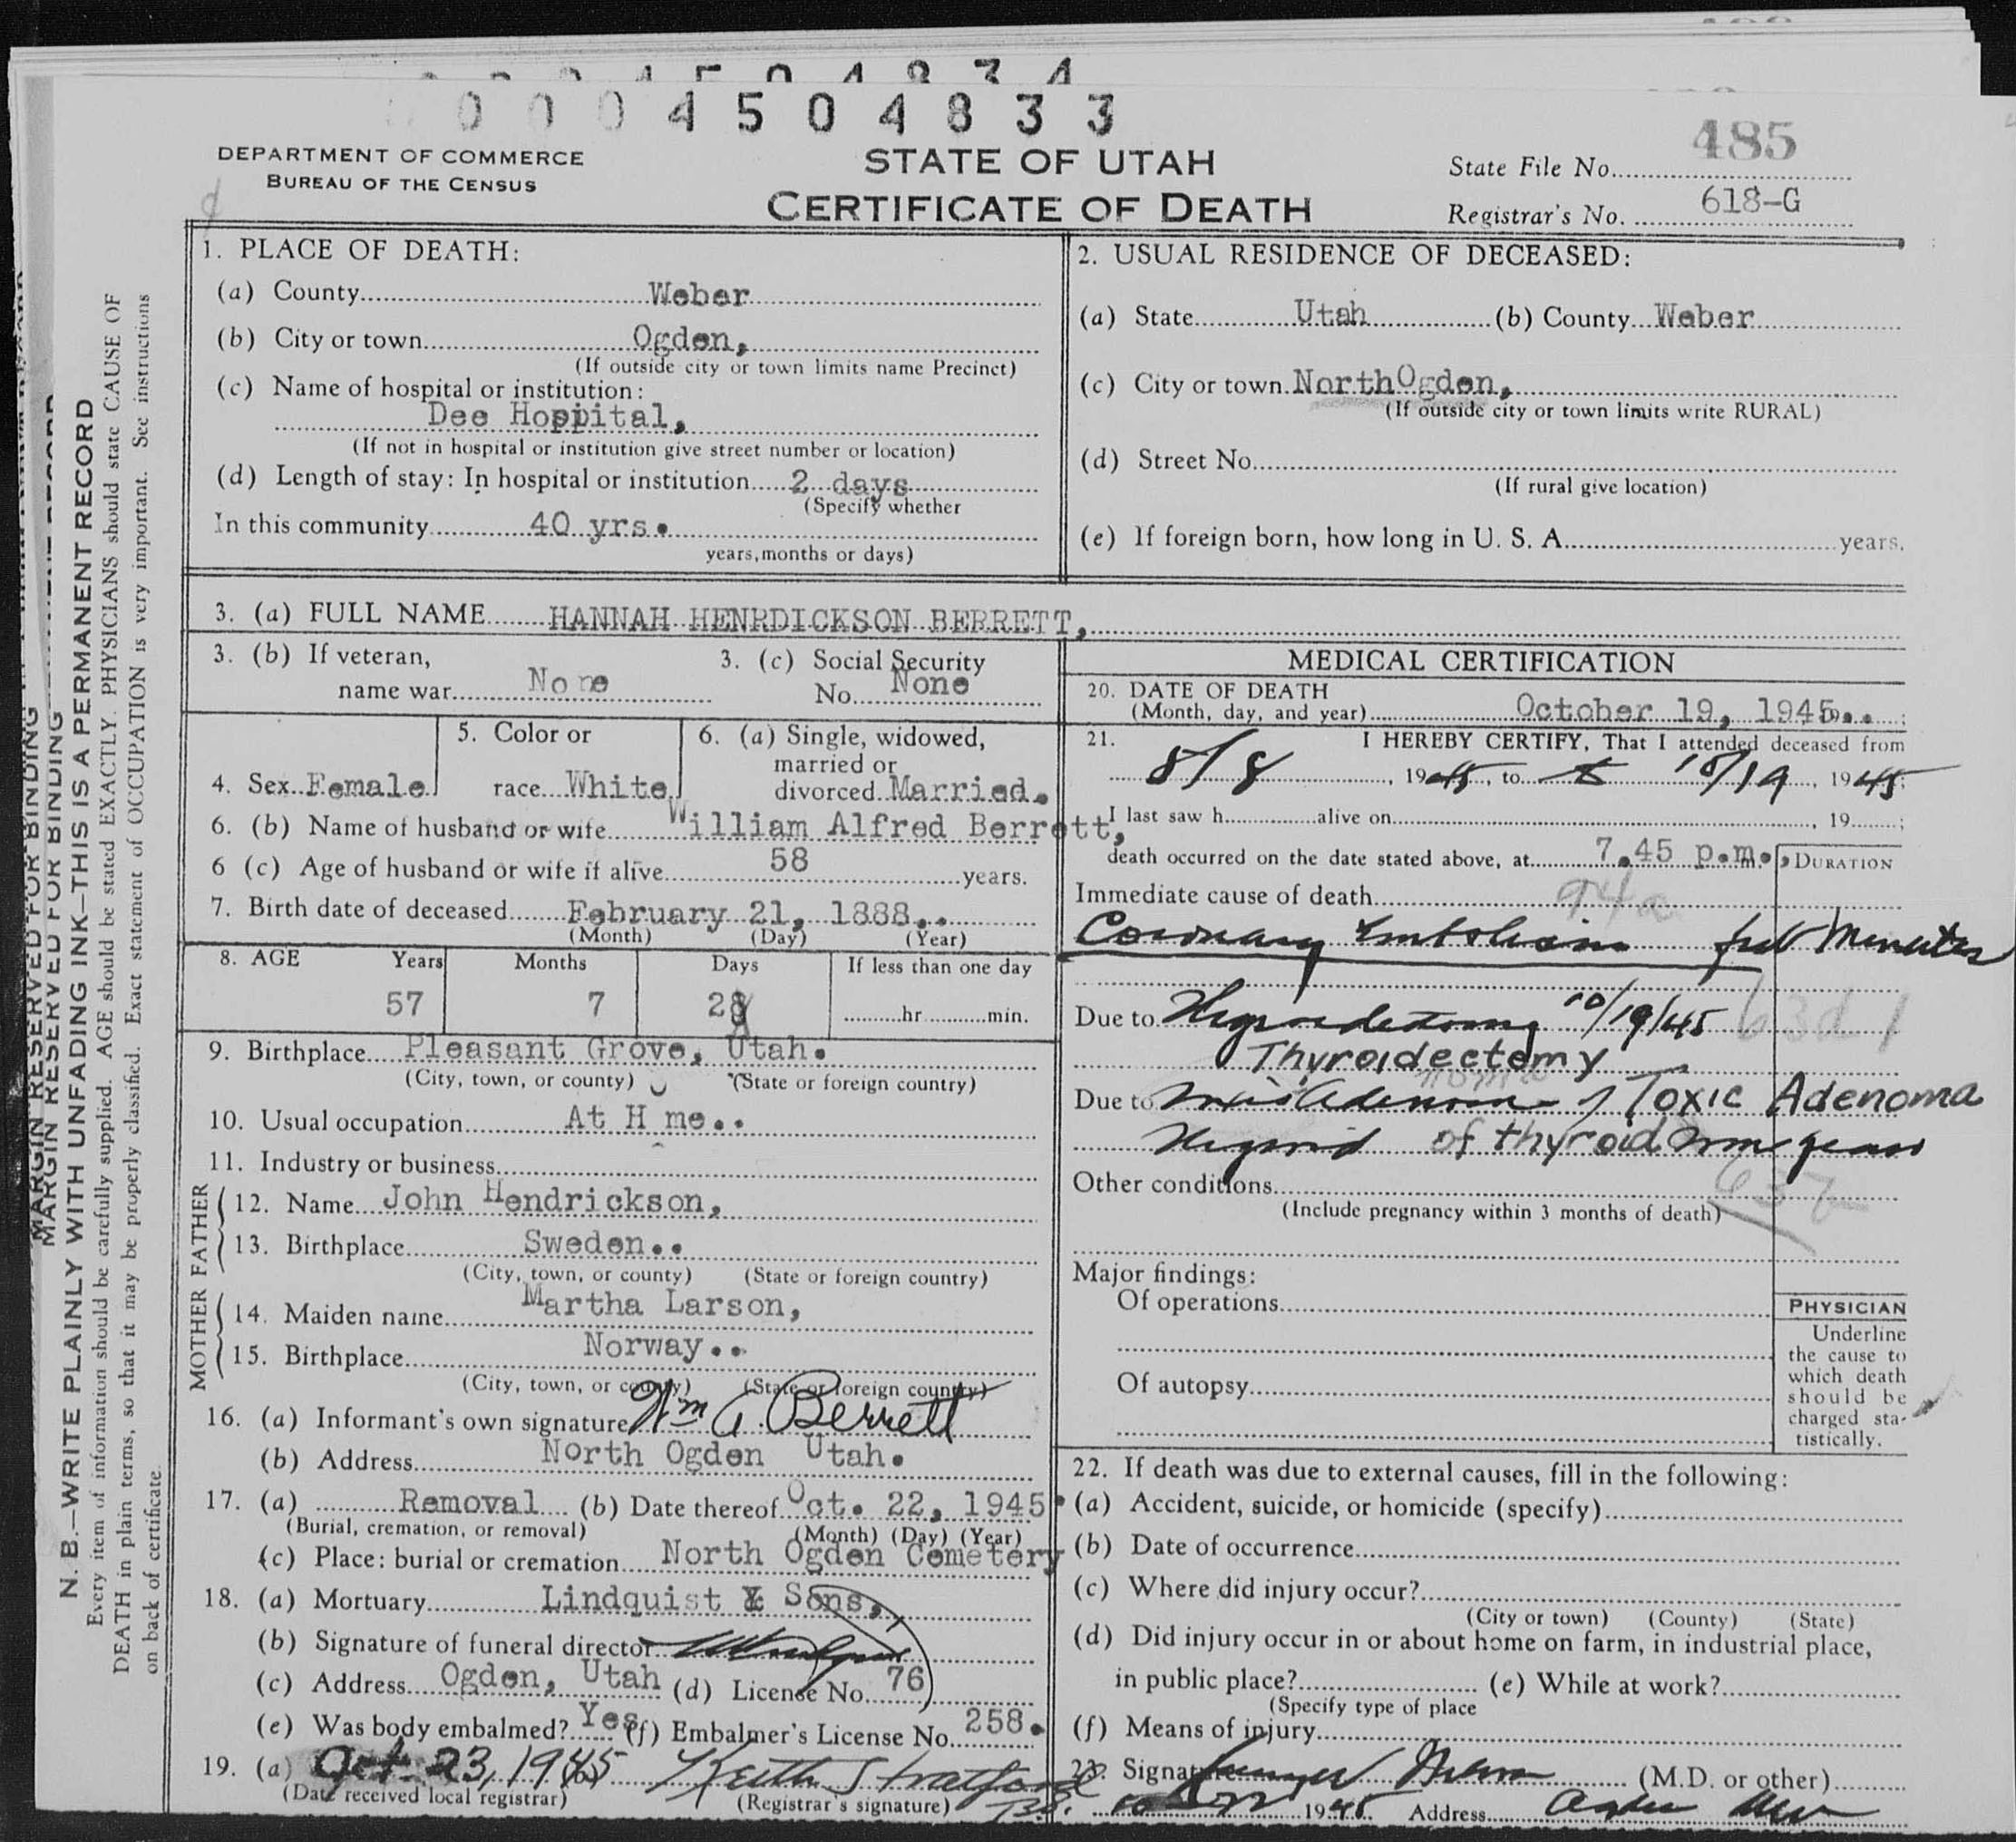 0004504833
DEPARTMENT OF COMMERCE
BUREAU OF THE CENSUS
STATE OF UTAH
CERTIFICATE OF DEATH
State File No. 485
Registrar's No. 618-G
1. PLACE OF DEATH:
(a) County Weber
(b) City or town Ogden,
(If outside city or town limits name Precinct)
(c) Name of hospital or institution:
Dee Hospital,
(If not in hospital or institution give street number or location)
(d) Length of stay: In hospital or institution 2 days
(Specify whether
In this community 40 yrs.
years, months or days)
2. USUAL RESIDENCE OF DECEASED:
(a) State Utah (b) County Weber
(c) City or town North Ogden,
(If outside city or town limits write RURAL)
(d) Street No.
(If rural give location)
(e) If foreign born, how long in U. S. A. years.
3. (a) FULL NAME HANNAH HENRDICKSON BERRETT,
3. (b) If veteran, name war None
3. (c) Social Security No. None
4. Sex Female
5. Color or race White
6. (a) Single, widowed, married or divorced Married.
6. (b) Name of husband or wife William Alfred Berrett,
6 (c) Age of husband or wife if alive 58 years.
7. Birth date of deceased February 21, 1888..
(Month) (Day) (Year)
8. AGE Years Months Days If less than one day
57 7 28 hr. min.
9. Birthplace Pleasant Grove, Utah.
(City, town, or county) (State or foreign country)
10. Usual occupation At H me..
11. Industry or business
FATHER
12. Name John Hendrickson,
13. Birthplace Sweden..
(City, town, or county) (State or foreign country)
MOTHER
14. Maiden name Martha Larson,
15. Birthplace Norway..
(City, town, or county) (State or foreign country)
16. (a) Informant's own signature Wm A. Berrett
(b) Address North Ogden Utah.
17. (a) Removal (b) Date thereof Oct. 22, 1945
(Burial, cremation, or removal) (Month) (Day) (Year)
(c) Place: burial or cremation North Ogden Cemetery
18. (a) Mortuary Lindquist & Sons,
(b) Signature of funeral director
(c) Address Ogden, Utah (d) License No. 76
(e) Was body embalmed? Yes (f) Embalmer's License No. 258.
19. (a) Oct. 23, 1945 Keith Stratford
(Date received local registrar) (Registrar's signature)
MEDICAL CERTIFICATION
20. DATE OF DEATH
(Month, day, and year) October 19, 1945..
21. I HEREBY CERTIFY, That I attended deceased from
8/8, 1945, to 10/19, 1945;
I last saw h alive on , 19 ;
death occurred on the date stated above, at 7.45 p.m.
DURATION
Immediate cause of death 94a
Coronary Embolism few Minutes
Due to Thyroidectomy 10/19/45 63d1
Thyroidectomy
Due to Toxic Adenoma
Thyroid of thyroid years
Other conditions
(Include pregnancy within 3 months of death)
Major findings:
Of operations
Of autopsy
PHYSICIAN
Underline
the cause to
which death
should be
charged sta-
tistically.
22. If death was due to external causes, fill in the following:
(a) Accident, suicide, or homicide (specify)
(b) Date of occurrence
(c) Where did injury occur?
(City or town) (County) (State)
(d) Did injury occur in or about home on farm, in industrial place,
in public place? (e) While at work?
(Specify type of place
(f) Means of injury
23. Signature (M.D. or other)
1945 Address
MARGIN RESERVED FOR BINDING
MARGIN RESERVED FOR BINDING
N. B.—WRITE PLAINLY WITH UNFADING INK—THIS IS A PERMANENT RECORD
Every item of information should be carefully supplied. AGE should be stated EXACTLY. PHYSICIANS should state CAUSE OF
DEATH in plain terms, so that it may be properly classified. Exact statement of OCCUPATION is very important. See instructions
on back of certificate.